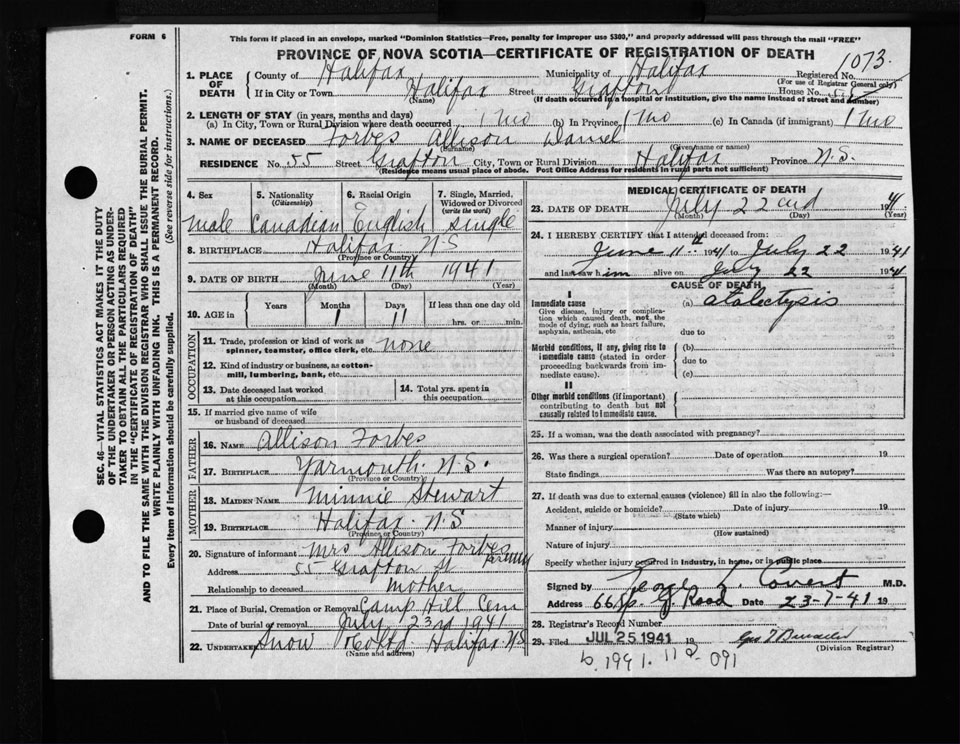 FORM 6
This form if placed in an envelope, marked "Dominion Statistics—Free, penalty for improper use $300," and properly addressed will pass through the mail "FREE"
PROVINCE OF NOVA SCOTIA—CERTIFICATE OF REGISTRATION OF DEATH
1073
1. PLACE OF DEATH County of Halifax Municipality of Halifax Registered No.
(For use of Registrar General only)
If in City or Town Halifax Street Grafton House No.
(Name) (If death occurred in a hospital or institution, give the name instead of street and number)
2. LENGTH OF STAY (in years, months and days)
(a) In City, Town or Rural Division where death occurred 1 Mo (b) In Province 1 Mo (c) In Canada (if immigrant) 1 Mo
3. NAME OF DECEASED Forbes Allison Daniel
(Surname) (Given name or names)
RESIDENCE No. 55 Street Grafton City, Town or Rural Division Halifax Province N.S.
(Residence means usual place of abode. Post Office Address for residents in rural parts not sufficient)
4. Sex 5. Nationality (Citizenship) 6. Racial Origin 7. Single, Married, Widowed or Divorced (write the word)
male Canadian English Single
8. BIRTHPLACE Halifax N.S
(Province or Country)
9. DATE OF BIRTH June 11th 1941
(Month) (Day) (Year)
10. AGE in Years Months Days If less than one day old
1 11 hrs. or min.
OCCUPATION
11. Trade, profession or kind of work as spinner, teamster, office clerk, etc. none
12. Kind of industry or business, as cotton-mill, lumbering, bank, etc.
13. Date deceased last worked at this occupation
14. Total yrs. spent in this occupation
15. If married give name of wife or husband of deceased
FATHER
16. NAME Allison Forbes
17. BIRTHPLACE Yarmouth. N.S.
(Province or Country)
MOTHER
18. MAIDEN NAME Minnie Stewart
19. BIRTHPLACE Halifax. N.S
(Province or Country)
20. Signature of informant Mrs Allison Forbes
Address 55 Grafton St
Relationship to deceased Mother
21. Place of Burial, Cremation or Removal Camp Hill Cem
Date of burial or removal July 23rd 1941
22. UNDERTAKER Snow & Co Ltd Halifax N.S
(Name and address)
MEDICAL CERTIFICATE OF DEATH
23. DATE OF DEATH July 22nd 1941
(Month) (Day) (Year)
24. I HEREBY CERTIFY that I attended deceased from:
June 11th 1941 to July 22 1941
and last saw him alive on July 22 1941
CAUSE OF DEATH
I
Immediate cause (a) atalectysis
Give disease, injury or complication which caused death, not the mode of dying, such as heart failure, asphyxia, asthenia, etc
due to
Morbid conditions, if any, giving rise to immediate cause (stated in order proceeding backwards from immediate cause).
(b)
due to
(c)
II
Other morbid conditions (if important) contributing to death but not causally related to immediate cause.
25. If a woman, was the death associated with pregnancy?
26. Was there a surgical operation? Date of operation 19
State findings Was there an autopsy?
27. If death was due to external causes (violence) fill in also the following:—
Accident, suicide or homicide? Date of injury 19
(State which)
Manner of injury
(How sustained)
Nature of injury
Specify whether injury occurred in industry, in home, or in public place
Signed by George L. Covert M.D.
Address Road Date 23-7-41 19
28. Registrar's Record Number
29. Filed JUL 25 1941 19
(Division Registrar)
SEC. 46—VITAL STATISTICS ACT MAKES IT THE DUTY
OF THE UNDERTAKER OR PERSON ACTING AS UNDER-
TAKER TO OBTAIN ALL THE PARTICULARS REQUIRED
IN THE "CERTIFICATE OF REGISTRATION OF DEATH"
AND TO FILE THE SAME WITH THE DIVISION REGISTRAR WHO SHALL ISSUE THE BURIAL PERMIT.
WRITE PLAINLY WITH UNFADING INK. THIS IS A PERMANENT RECORD.
Every item of information should be carefully supplied. (See reverse side for instructions.)